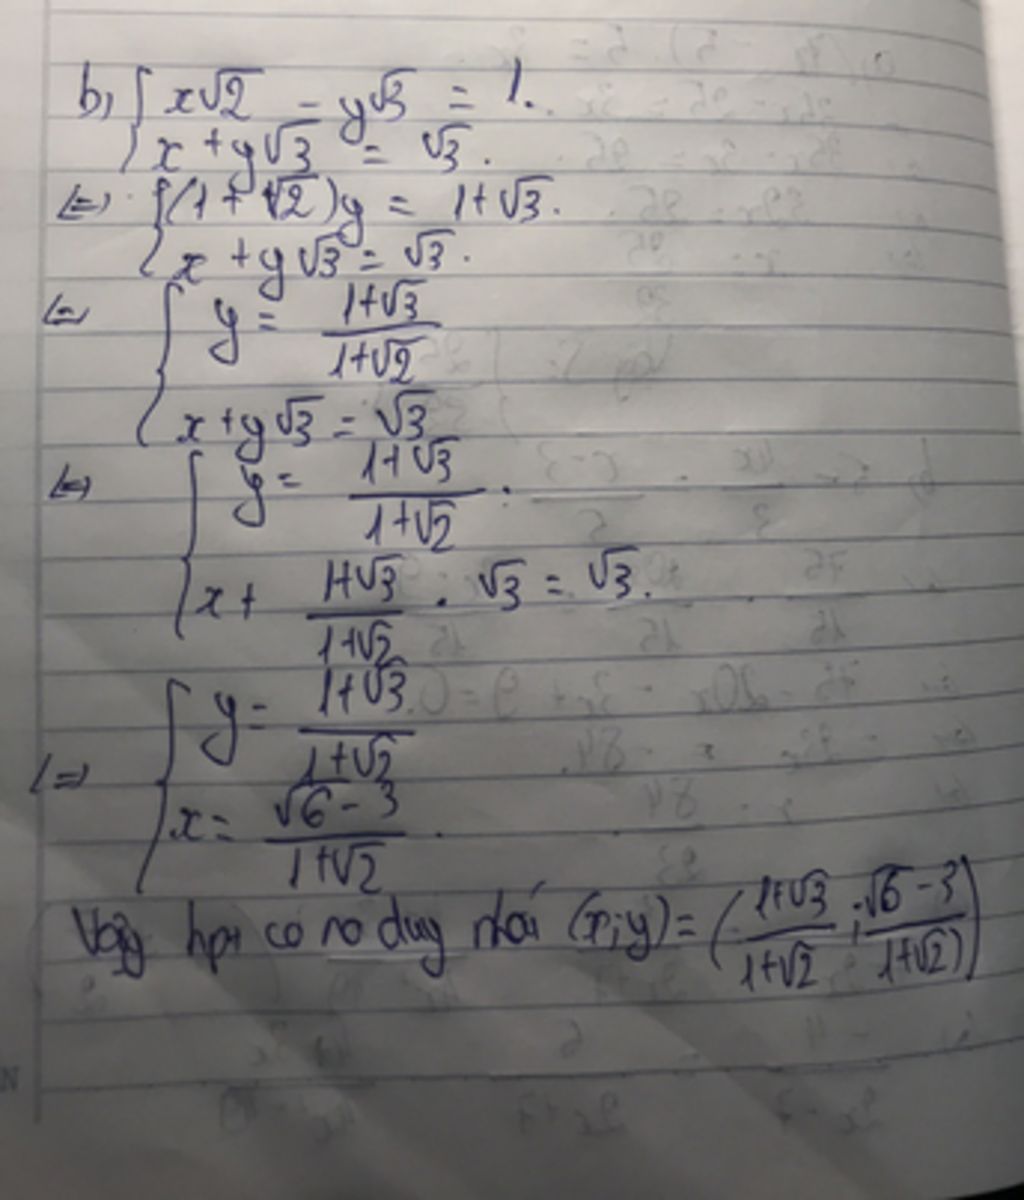 b, { x√2 - y√3 = 1.
x + y√3 = √3.
(=) { (1 + √2)y = 1+√3.
x + y√3 = √3.
(=) { y = (1+√3)/(1+√2)
x + y√3 = √3
(=) { y = (1+√3)/(1+√2).
x + (1+√3)/(1+√2) . √3 = √3.
(=) { y = (1+√3)/(1+√2)
x = (√6 - 3)/(1+√2).
Vậy hpt có no duy nhất (x;y) = ((1+√3)/(1+√2) ; (√6-3)/(1+√2))